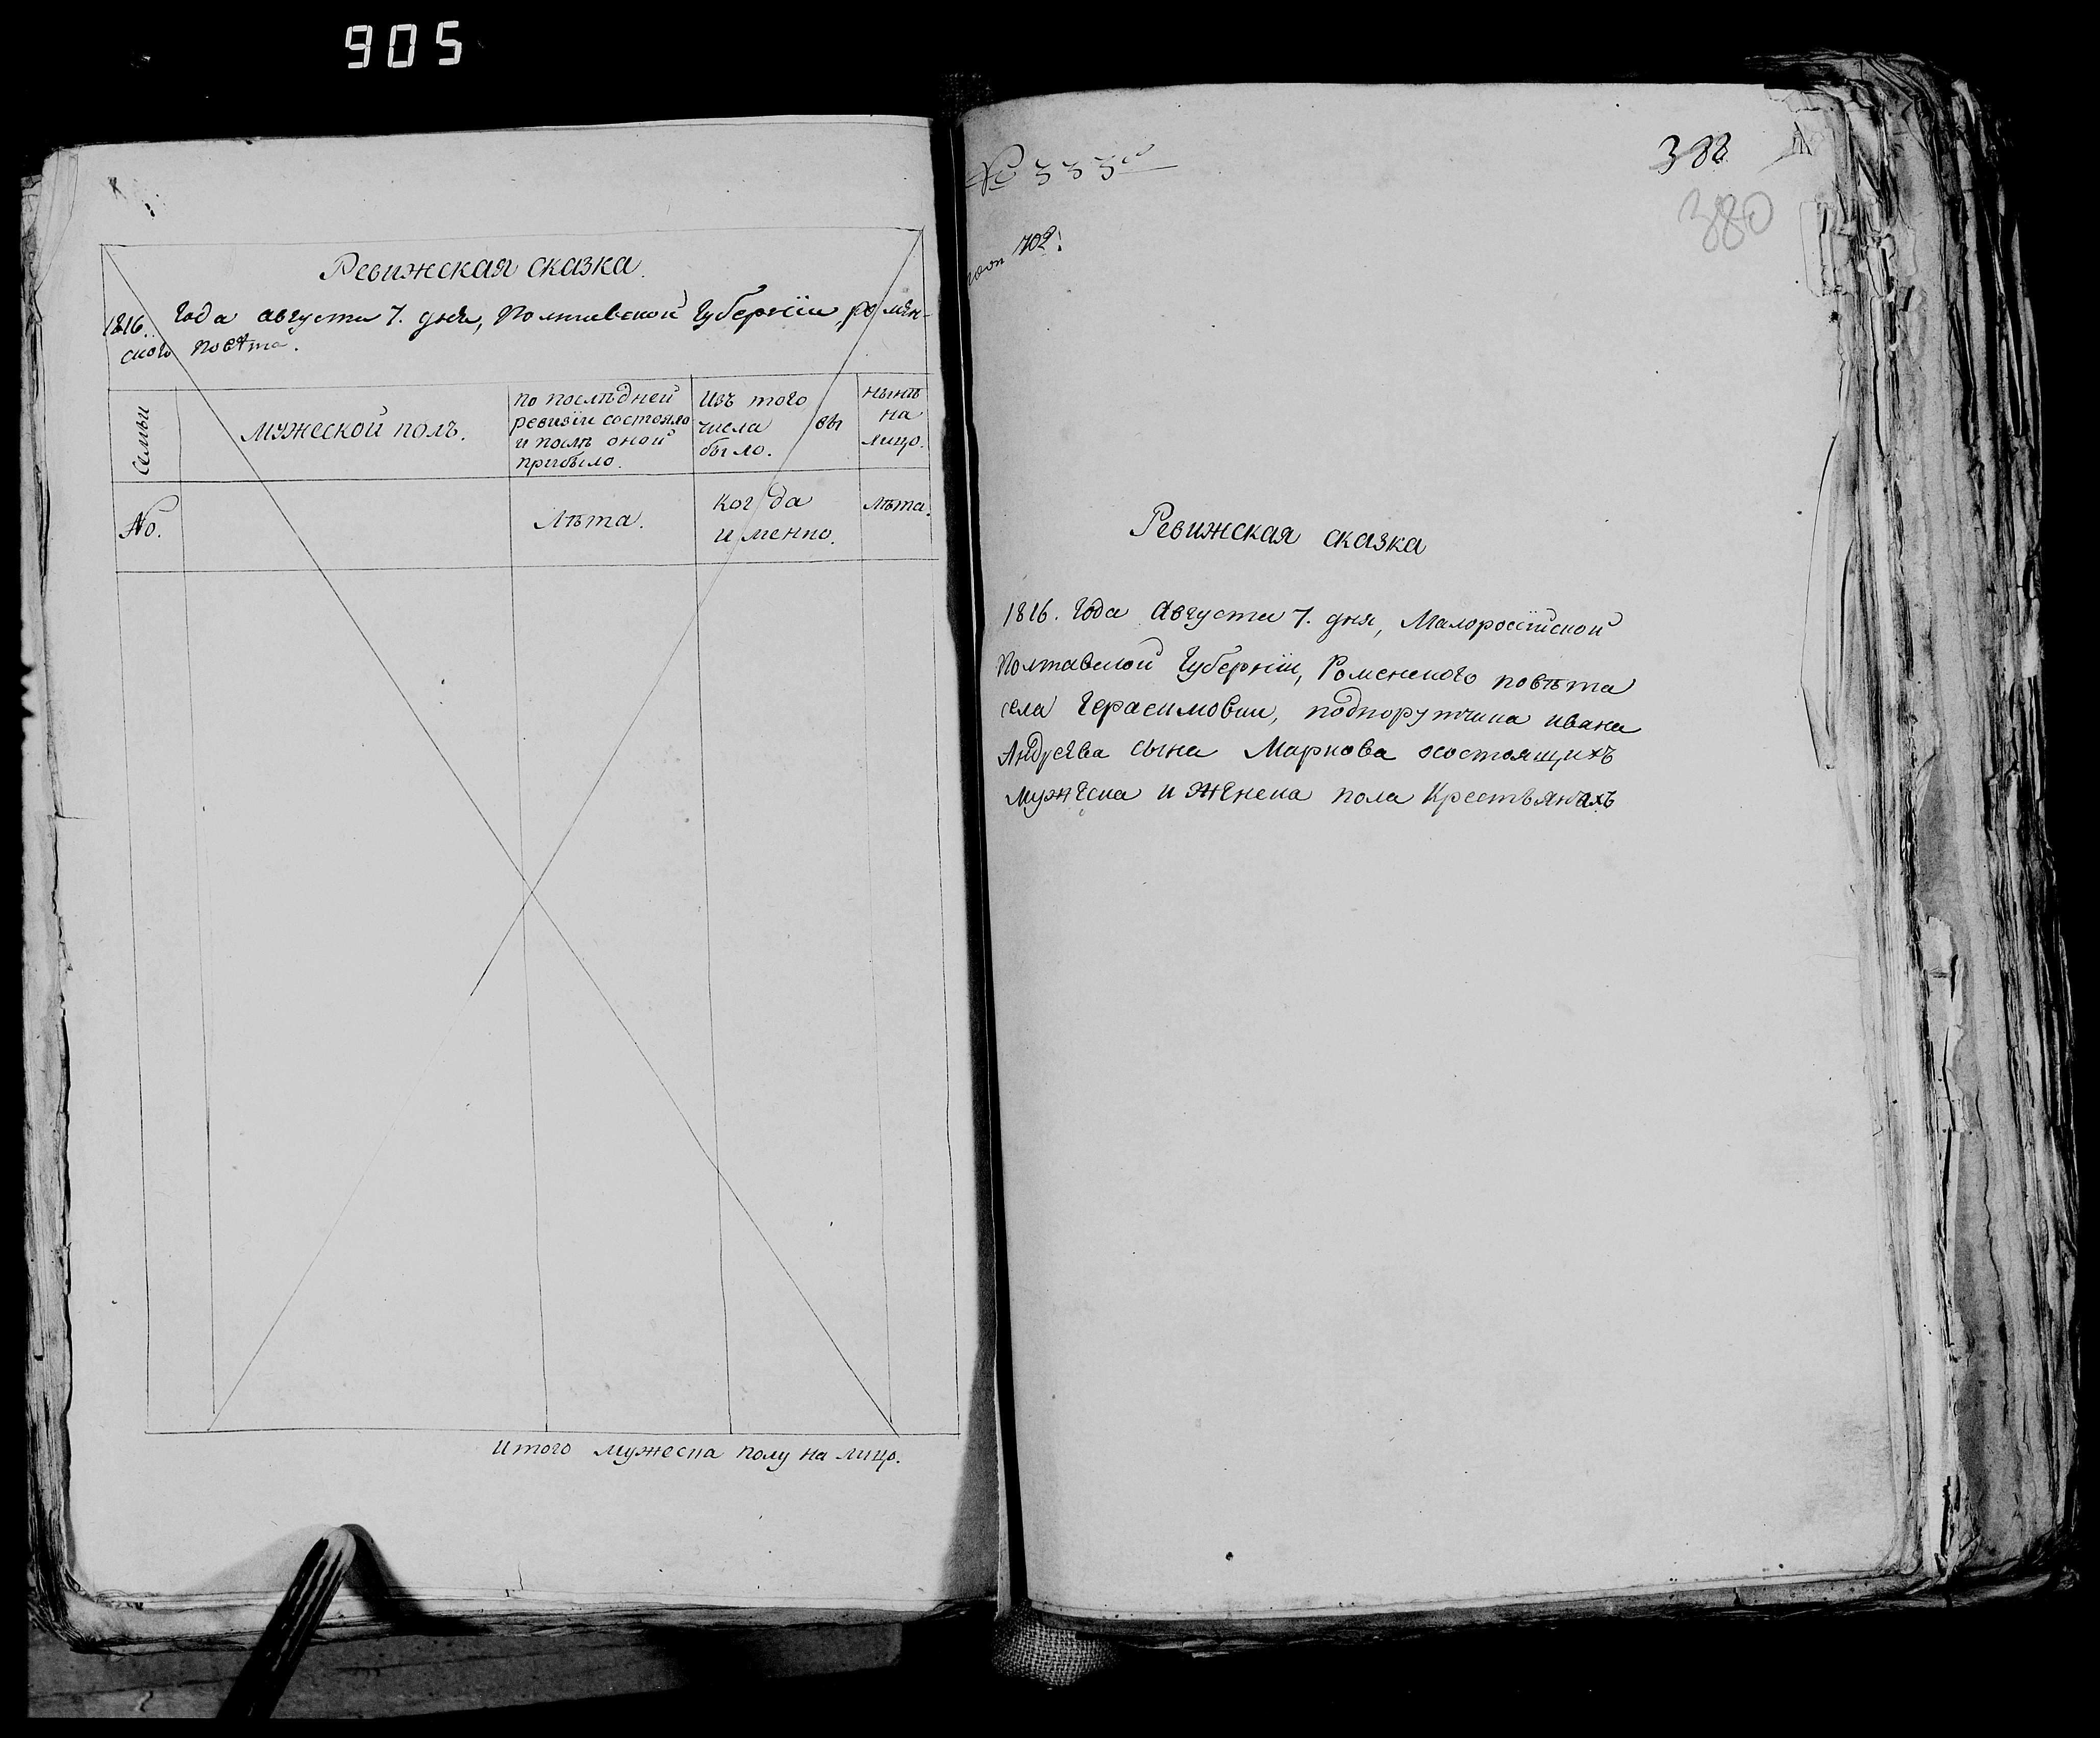 905
Ревижская сказка.
1816. года августа 7. дня, Полтавской Губернїи, ромен-
ского повѣта.
Семьи
мужеской полъ.
по послѣдней
ревизїи состояло
и послѣ оной
прибыло.
Изъ того
числа вы
было.
нынѣ
на
лицо.
No.
Лѣта.
когда
именно.
Лѣта.
Итого мужеска полу на лицо.
№ 333й
702.
388
380
Ревижская сказка
1816. Года Августа 7. дня, Малоросїйской
Полтавской Губернїи, Роменского повѣта
села Герасимовки, подпорутчика ивана
Андреева сына Маркова осостоящихъ
мужеска и женска пола Крестьянахъ